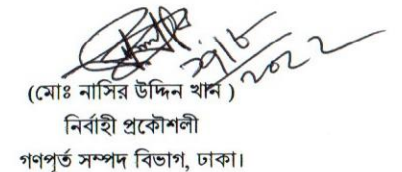 ২৮/৮/২০২২
(মোঃ নাসির উদ্দিন খান )
নির্বাহী প্রকৌশলী
গণপূর্ত সম্পদ বিভাগ, ঢাকা।